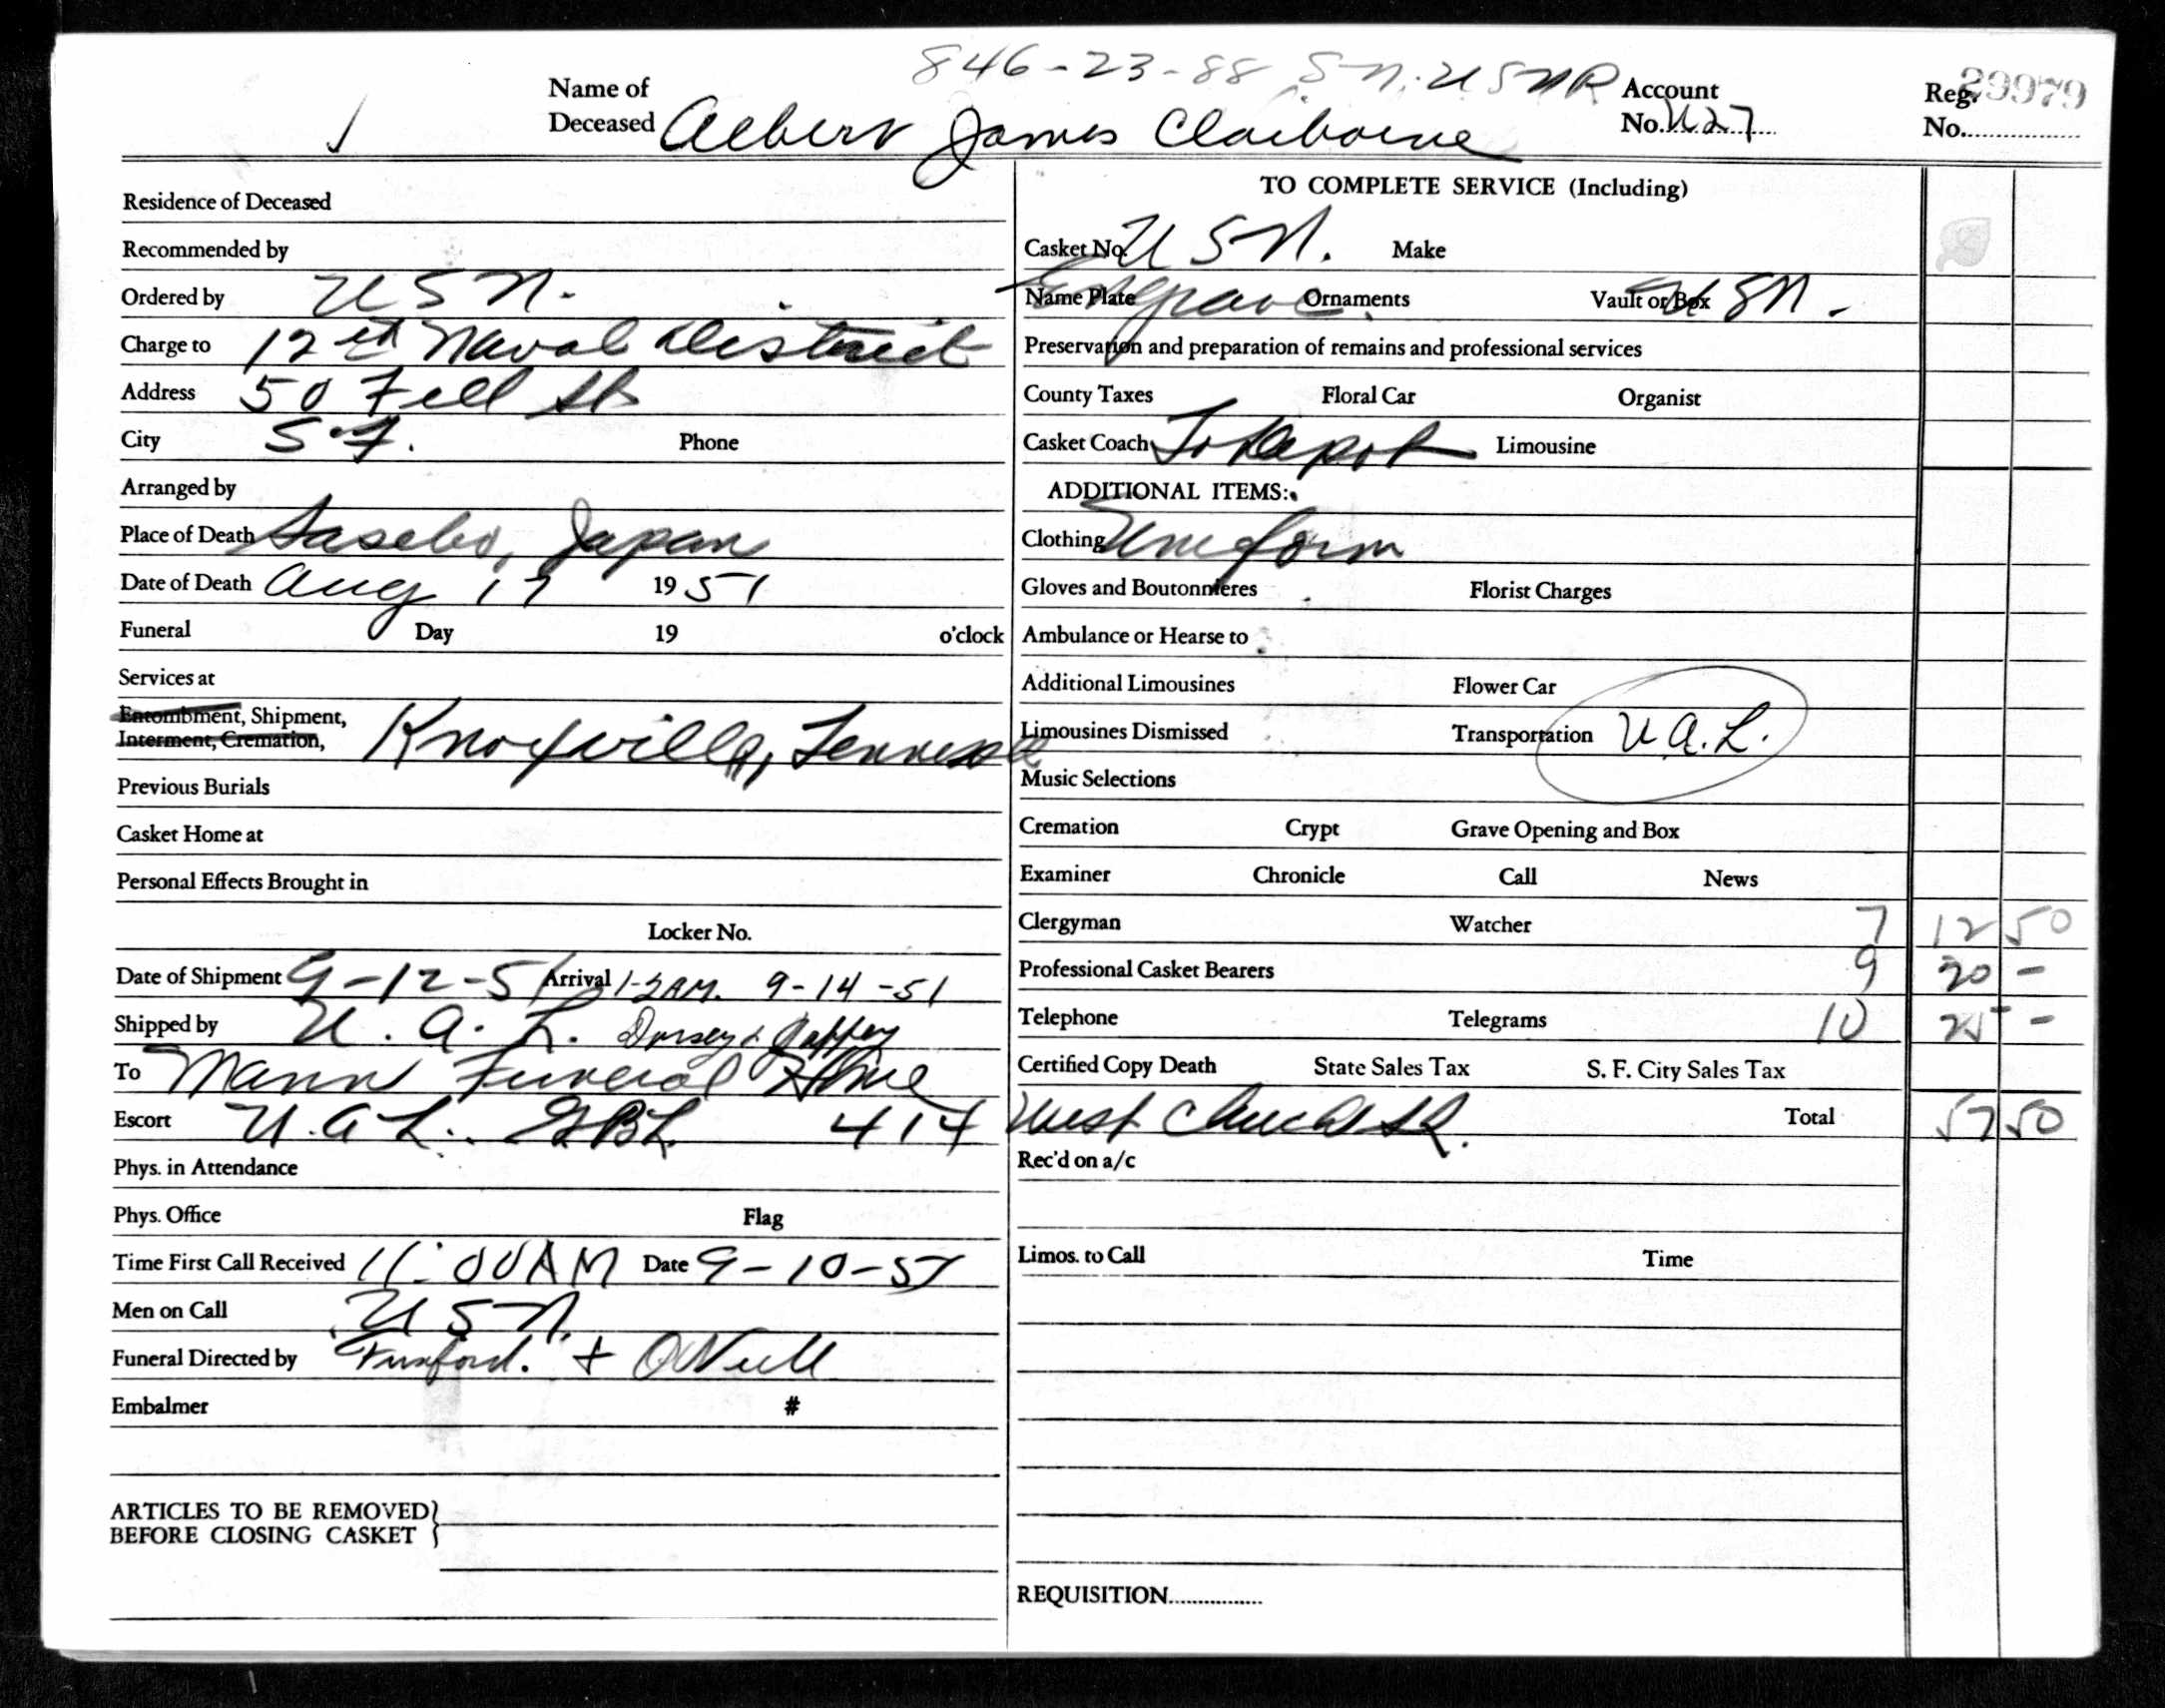 846-23-88 S.N. USNR
Name of Deceased Albert James Claiborne
Account No. U27
Reg. No. 29979
Residence of Deceased
Recommended by
Ordered by U S N.
Charge to 12th Naval District
Address 50 Fell St
City S.F. Phone
Arranged by
Place of Death Sasebo, Japan
Date of Death Aug 17 1951
Funeral Day 19 o'clock
Services at
Entombment, Shipment,
Interment, Cremation, Knoxville, Tennessee
Previous Burials
Casket Home at
Personal Effects Brought in
Locker No.
Date of Shipment 9-12-51 Arrival 1-2AM. 9-14-51
Shipped by U.A.L. Dorsey &
To Mann Funeral Home
Escort U.A.L. GBL 414 West Church St.
Phys. in Attendance
Phys. Office Flag
Time First Call Received 11:00AM Date 9-10-51
Men on Call U S N.
Funeral Directed by + O'Neill
Embalmer #
ARTICLES TO BE REMOVED
BEFORE CLOSING CASKET
TO COMPLETE SERVICE (Including)
Casket No. U S N. Make
Name Plate Engrave Ornaments Vault or Box U S N.
Preservation and preparation of remains and professional services
County Taxes Floral Car Organist
Casket Coach To Depot Limousine
ADDITIONAL ITEMS:
Clothing Uniform
Gloves and Boutonnieres Florist Charges
Ambulance or Hearse to
Additional Limousines Flower Car
Limousines Dismissed Transportation U.A.L.
Music Selections
Cremation Crypt Grave Opening and Box
Examiner Chronicle Call News
Clergyman Watcher 7 12 50
Professional Casket Bearers 9 20 -
Telephone Telegrams 10 25 -
Certified Copy Death State Sales Tax S. F. City Sales Tax
Total 57 50
Rec'd on a/c
Limos. to Call Time
REQUISITION................